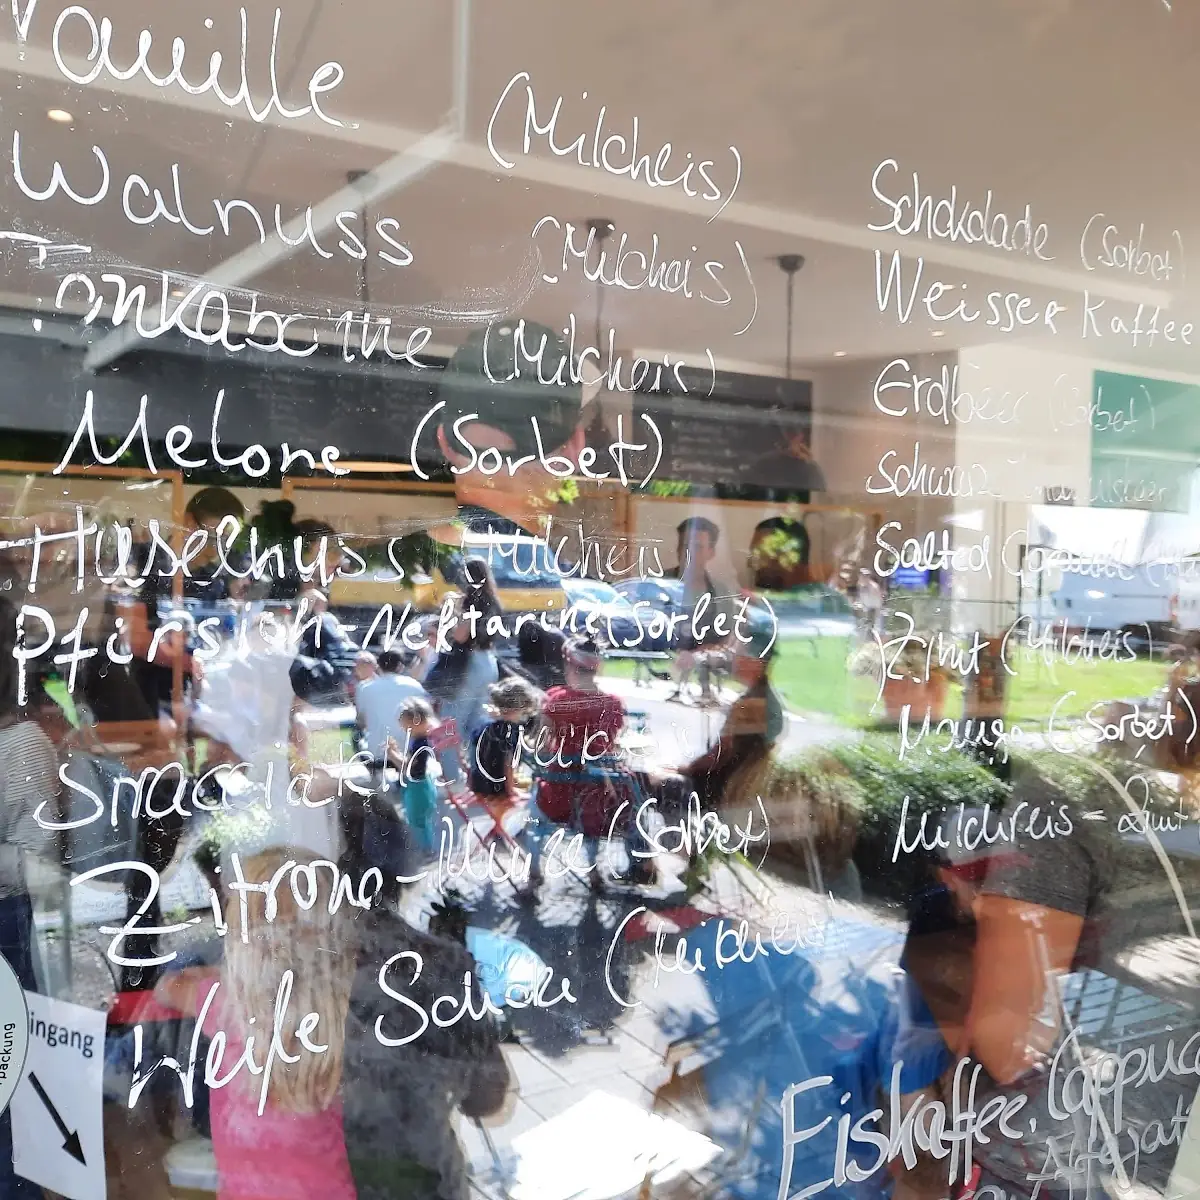 Vanille (Milcheis)
Walnuss (Milcheis)
Tonkabohne (Milcheis)
Melone (Sorbet)
Haselnuss (Milcheis)
Pfirsich-Nektarine (Sorbet)
Stracciatella (Milcheis)
Zitrone-Minze (Sorbet)
Weiße Schoki (Milcheis)
Schokolade (Sorbet)
Weisser Kaffee
Erdbeer (Sorbet)
Salted Caramel
Zimt (Milcheis)
Mango (Sorbet)
Milchreis-Zimt
Eiskaffee,
ingang
packung